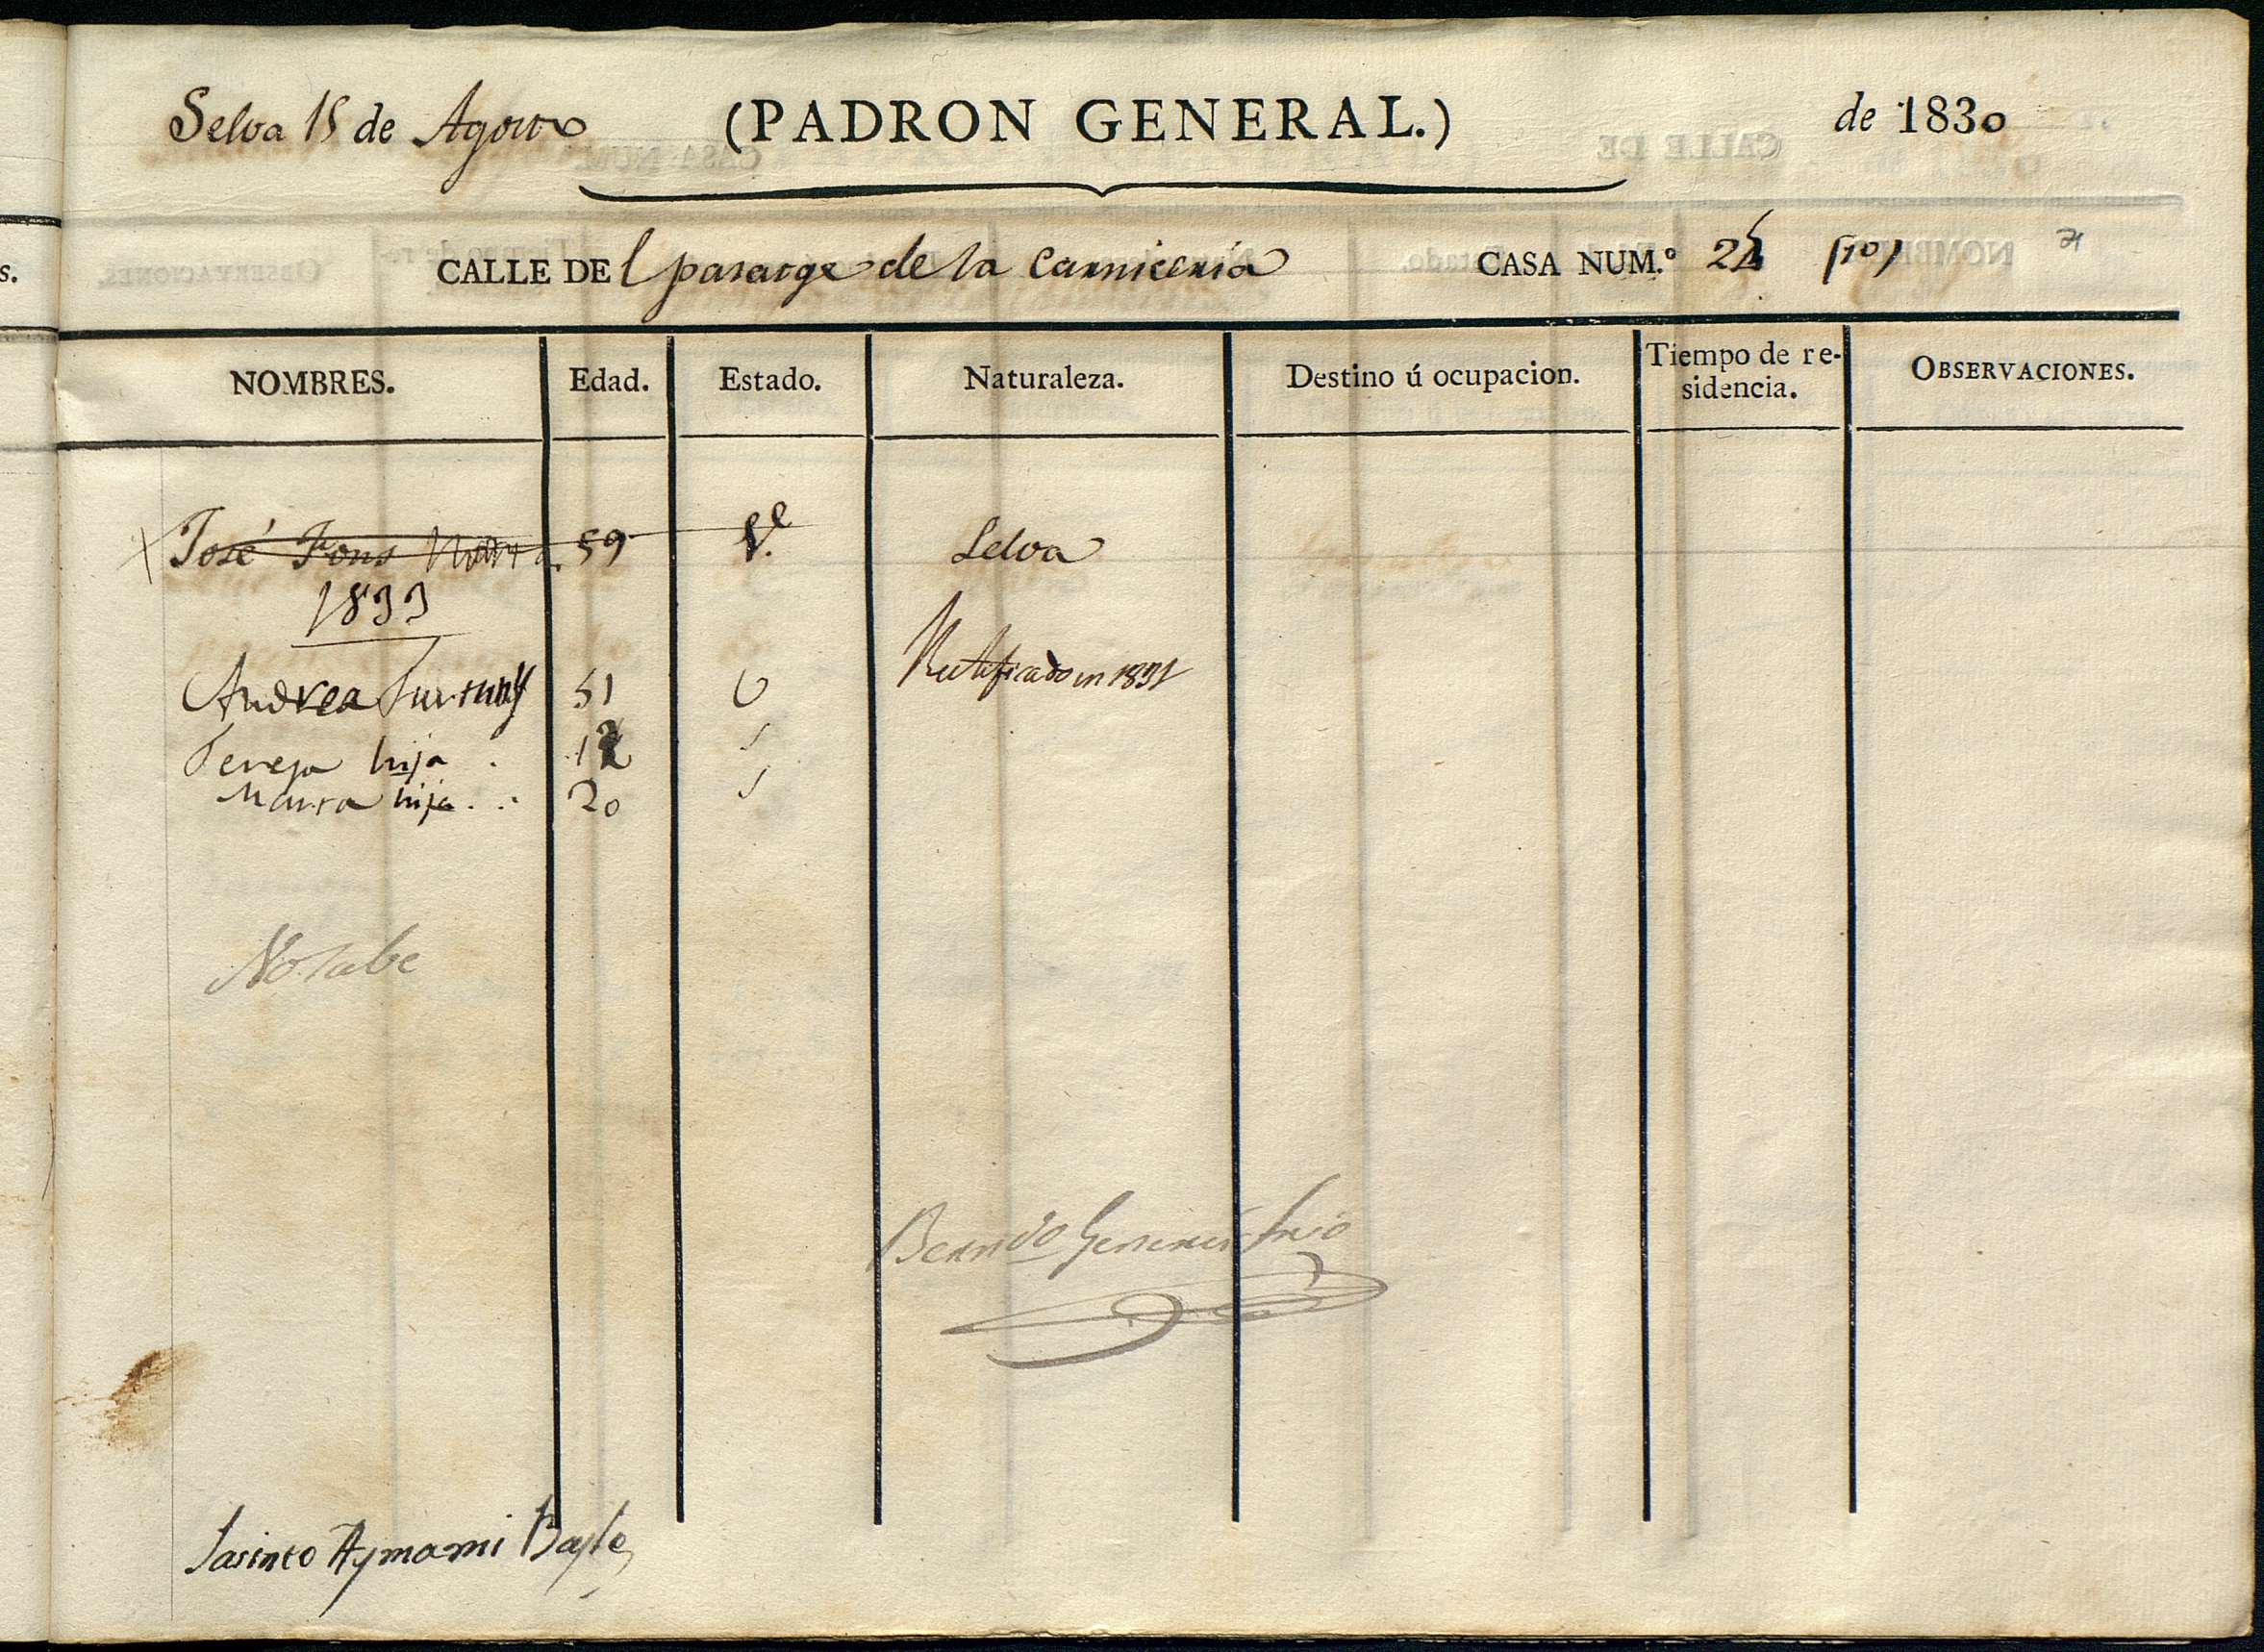 Selva 15 de Agosto (PADRON GENERAL.) de 1830
CALLE DEl pasatge de la Carniceria CASA NUM.º 24 (70) 71
NOMBRES. Edad. Estado. Naturaleza. Destino ú ocupacion. Tiempo de re- OBSERVACIONES.
sidencia.
José Fons 59 Selva
1833
Rectificado en 1831
Andrea 51 V
Teresa hija . 12 S
Maria hija . . 20 S
No sabe
Jasinto Aymami Bayle